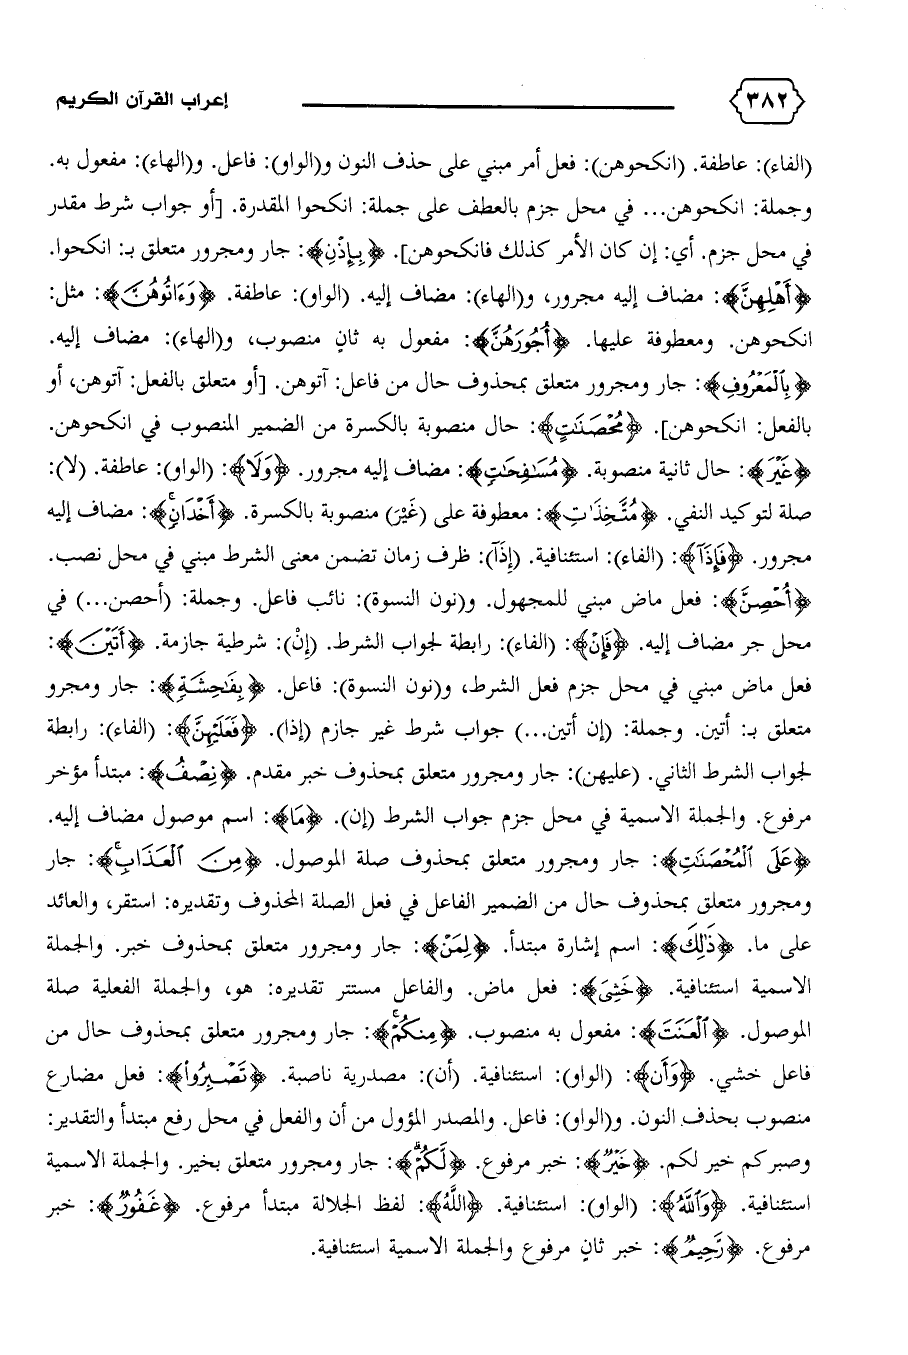 ٣٨٢ إعراب القرآن الكريم
(الفاء): عاطفة. (انكحوهن): فعل أمر مبني على حذف النون و(الواو): فاعل. و(الهاء): مفعول به.
وجملة: انكحوهن... في محل جزم بالعطف على جملة: انكحوا المقدرة. [أو جواب شرط مقدر
في محل جزم. أي: إن كان الأمر كذلك فانكحوهن]. ﴿بِإِذْنِ﴾: جار ومجرور متعلق بـ: انكحوا.
﴿أَهْلِهِنَّ﴾: مضاف إليه مجرور، و(الهاء): مضاف إليه. (الواو): عاطفة. ﴿وَءَاتُوهُنَّ﴾: مثل:
انكحوهن. ومعطوفة عليها. ﴿أُجُورَهُنَّ﴾: مفعول به ثانٍ منصوب، و(الهاء): مضاف إليه.
﴿بِالْمَعْرُوفِ﴾: جار ومجرور متعلق بمحذوف حال من فاعل: آتوهن. [أو متعلق بالفعل: آتوهن، أو
بالفعل: انكحوهن]. ﴿مُحْصَنَٰتٍ﴾: حال منصوبة بالكسرة من الضمير المنصوب في انكحوهن.
﴿غَيْرَ﴾: حال ثانية منصوبة. ﴿مُسَٰفِحَٰتٍ﴾: مضاف إليه مجرور. ﴿وَلَا﴾: (الواو): عاطفة. (لا):
صلة لتوكيد النفي. ﴿مُتَّخِذَٰتِ﴾: معطوفة على (غَيْرَ) منصوبة بالكسرة. ﴿أَخْدَانٍۚ﴾: مضاف إليه
مجرور. ﴿فَإِذَآ﴾: (الفاء): استئنافية. (إِذَآ): ظرف زمان تضمن معنى الشرط مبني في محل نصب.
﴿أُحْصِنَّ﴾: فعل ماض مبني للمجهول. و(نون النسوة): نائب فاعل. وجملة: (أحصن...) في
محل جر مضاف إليه. ﴿فَإِنْ﴾: (الفاء): رابطة لجواب الشرط. (إِنْ): شرطية جازمة. ﴿أَتَيْنَ﴾:
فعل ماض مبني في محل جزم فعل الشرط، و(نون النسوة): فاعل. ﴿بِفَٰحِشَةٍ﴾: جار ومجرو
متعلق بـ: أتين. وجملة: (إن أتين...) جواب شرط غير جازم (إذا). ﴿فَعَلَيْهِنَّ﴾: (الفاء): رابطة
لجواب الشرط الثاني. (عليهن): جار ومجرور متعلق بمحذوف خبر مقدم. ﴿نِصْفُ﴾: مبتدأ مؤخر
مرفوع. والجملة الاسمية في محل جزم جواب الشرط (إن). ﴿مَا﴾: اسم موصول مضاف إليه.
﴿عَلَى ٱلْمُحْصَنَٰتِ﴾: جار ومجرور متعلق بمحذوف صلة الموصول. ﴿مِنَ ٱلْعَذَابِۚ﴾: جار
ومجرور متعلق بمحذوف حال من الضمير الفاعل في فعل الصلة المحذوف وتقديره: استقر، والعائد
على ما. ﴿ذَٰلِكَ﴾: اسم إشارة مبتدأ. ﴿لِمَنْ﴾: جار ومجرور متعلق بمحذوف خبر. والجملة
الاسمية استئنافية. ﴿خَشِىَ﴾: فعل ماض. والفاعل مستتر تقديره: هو، والجملة الفعلية صلة
الموصول. ﴿ٱلْعَنَتَ﴾: مفعول به منصوب. ﴿مِنكُمْۚ﴾: جار ومجرور متعلق بمحذوف حال من
فاعل خشي. ﴿وَأَن﴾: (الواو): استئنافية. (أن): مصدرية ناصبة. ﴿تَصْبِرُوا۟﴾: فعل مضارع
منصوب بحذف النون. و(الواو): فاعل. والمصدر المؤول من أن والفعل في محل رفع مبتدأ والتقدير:
وصبركم خير لكم. ﴿خَيْرٌ﴾: خبر مرفوع. ﴿لَّكُمْۗ﴾: جار ومجرور متعلق بخير. والجملة الاسمية
استئنافية. ﴿وَٱللَّهُ﴾: (الواو): استئنافية. ﴿اللَّهُ﴾: لفظ الجلالة مبتدأ مرفوع. ﴿غَفُورٌ﴾: خبر
مرفوع. ﴿رَّحِيمٌ﴾: خبر ثانٍ مرفوع والجملة الاسمية استئنافية.